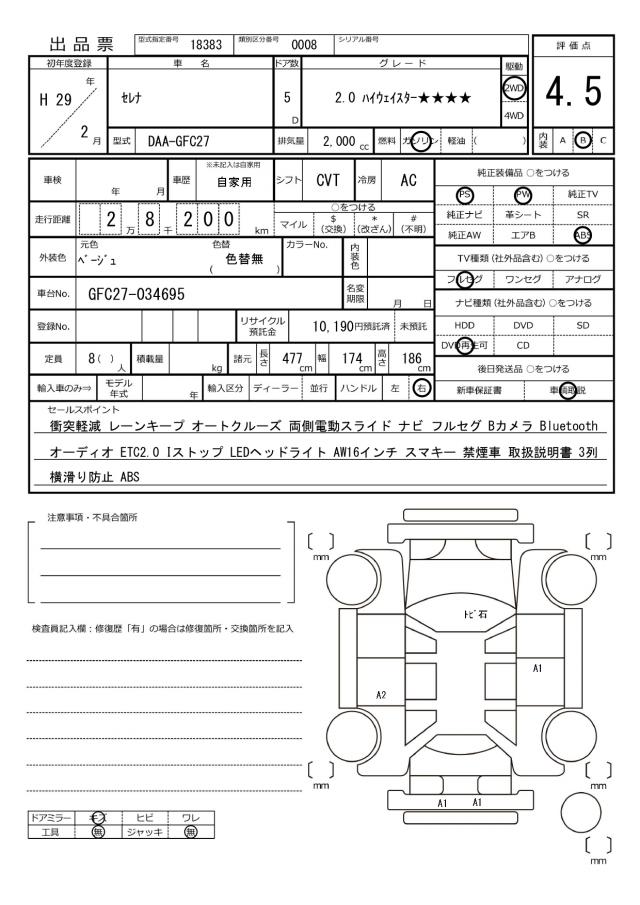 出品票 型式指定番号 18383 類別区分番号 0008 シリアル番号
評価点
4.5
内装 A B C
初年度登録 車名 ドア数 グレード 駆動
H 29 年 2 月 セレナ 5 D 2.0 ハイウェイスター★★★★ 2WD 4WD
型式 DAA-GFC27 排気量 2,000 cc 燃料 ガソリン 軽油 ( )
車検 年 月 車歴 ※未記入は自家用 自家用 シフト CVT 冷房 AC
走行距離 2 万 8 千 2 0 0 km
○をつける
マイル $ (交換) * (改ざん) # (不明)
外装色 元色 ベージュ 色替 ( 色替無 ) カラーNo. 内装色
車台No. GFC27-034695 名変期限 月 日
登録No. リサイクル預託金 10,190円預託済 未預託
定員 8( ) 人 積載量 kg 諸元 長さ 477 cm 幅 174 cm 高さ 186 cm
輸入車のみ⇒ モデル年式 年 輸入区分 ディーラー 並行 ハンドル 左 右
純正装備品 ○をつける
PS PW 純正TV
純正ナビ 革シート SR
純正AW エアB ABS
TV種類 (社外品含む) ○をつける
フルセグ ワンセグ アナログ
ナビ種類 (社外品含む) ○をつける
HDD DVD SD
DVD再生可 CD
後日発送品 ○をつける
新車保証書 車輌取説
セールスポイント
衝突軽減 レーンキープ オートクルーズ 両側電動スライド ナビ フルセグ Bカメラ Bluetooth
オーディオ ETC2.0 Iストップ LEDヘッドライト AW16インチ スマキー 禁煙車 取扱説明書 3列
横滑り防止 ABS
注意事項・不具合箇所
検査員記入欄：修復歴「有」の場合は修復箇所・交換箇所を記入
ドアミラー キズ ヒビ ワレ
工具 無 ジャッキ 無
[ ] mm
[ ] mm
トビ石
A1
A2
[ ] mm
[ ] mm
A1 A1
[ ] mm